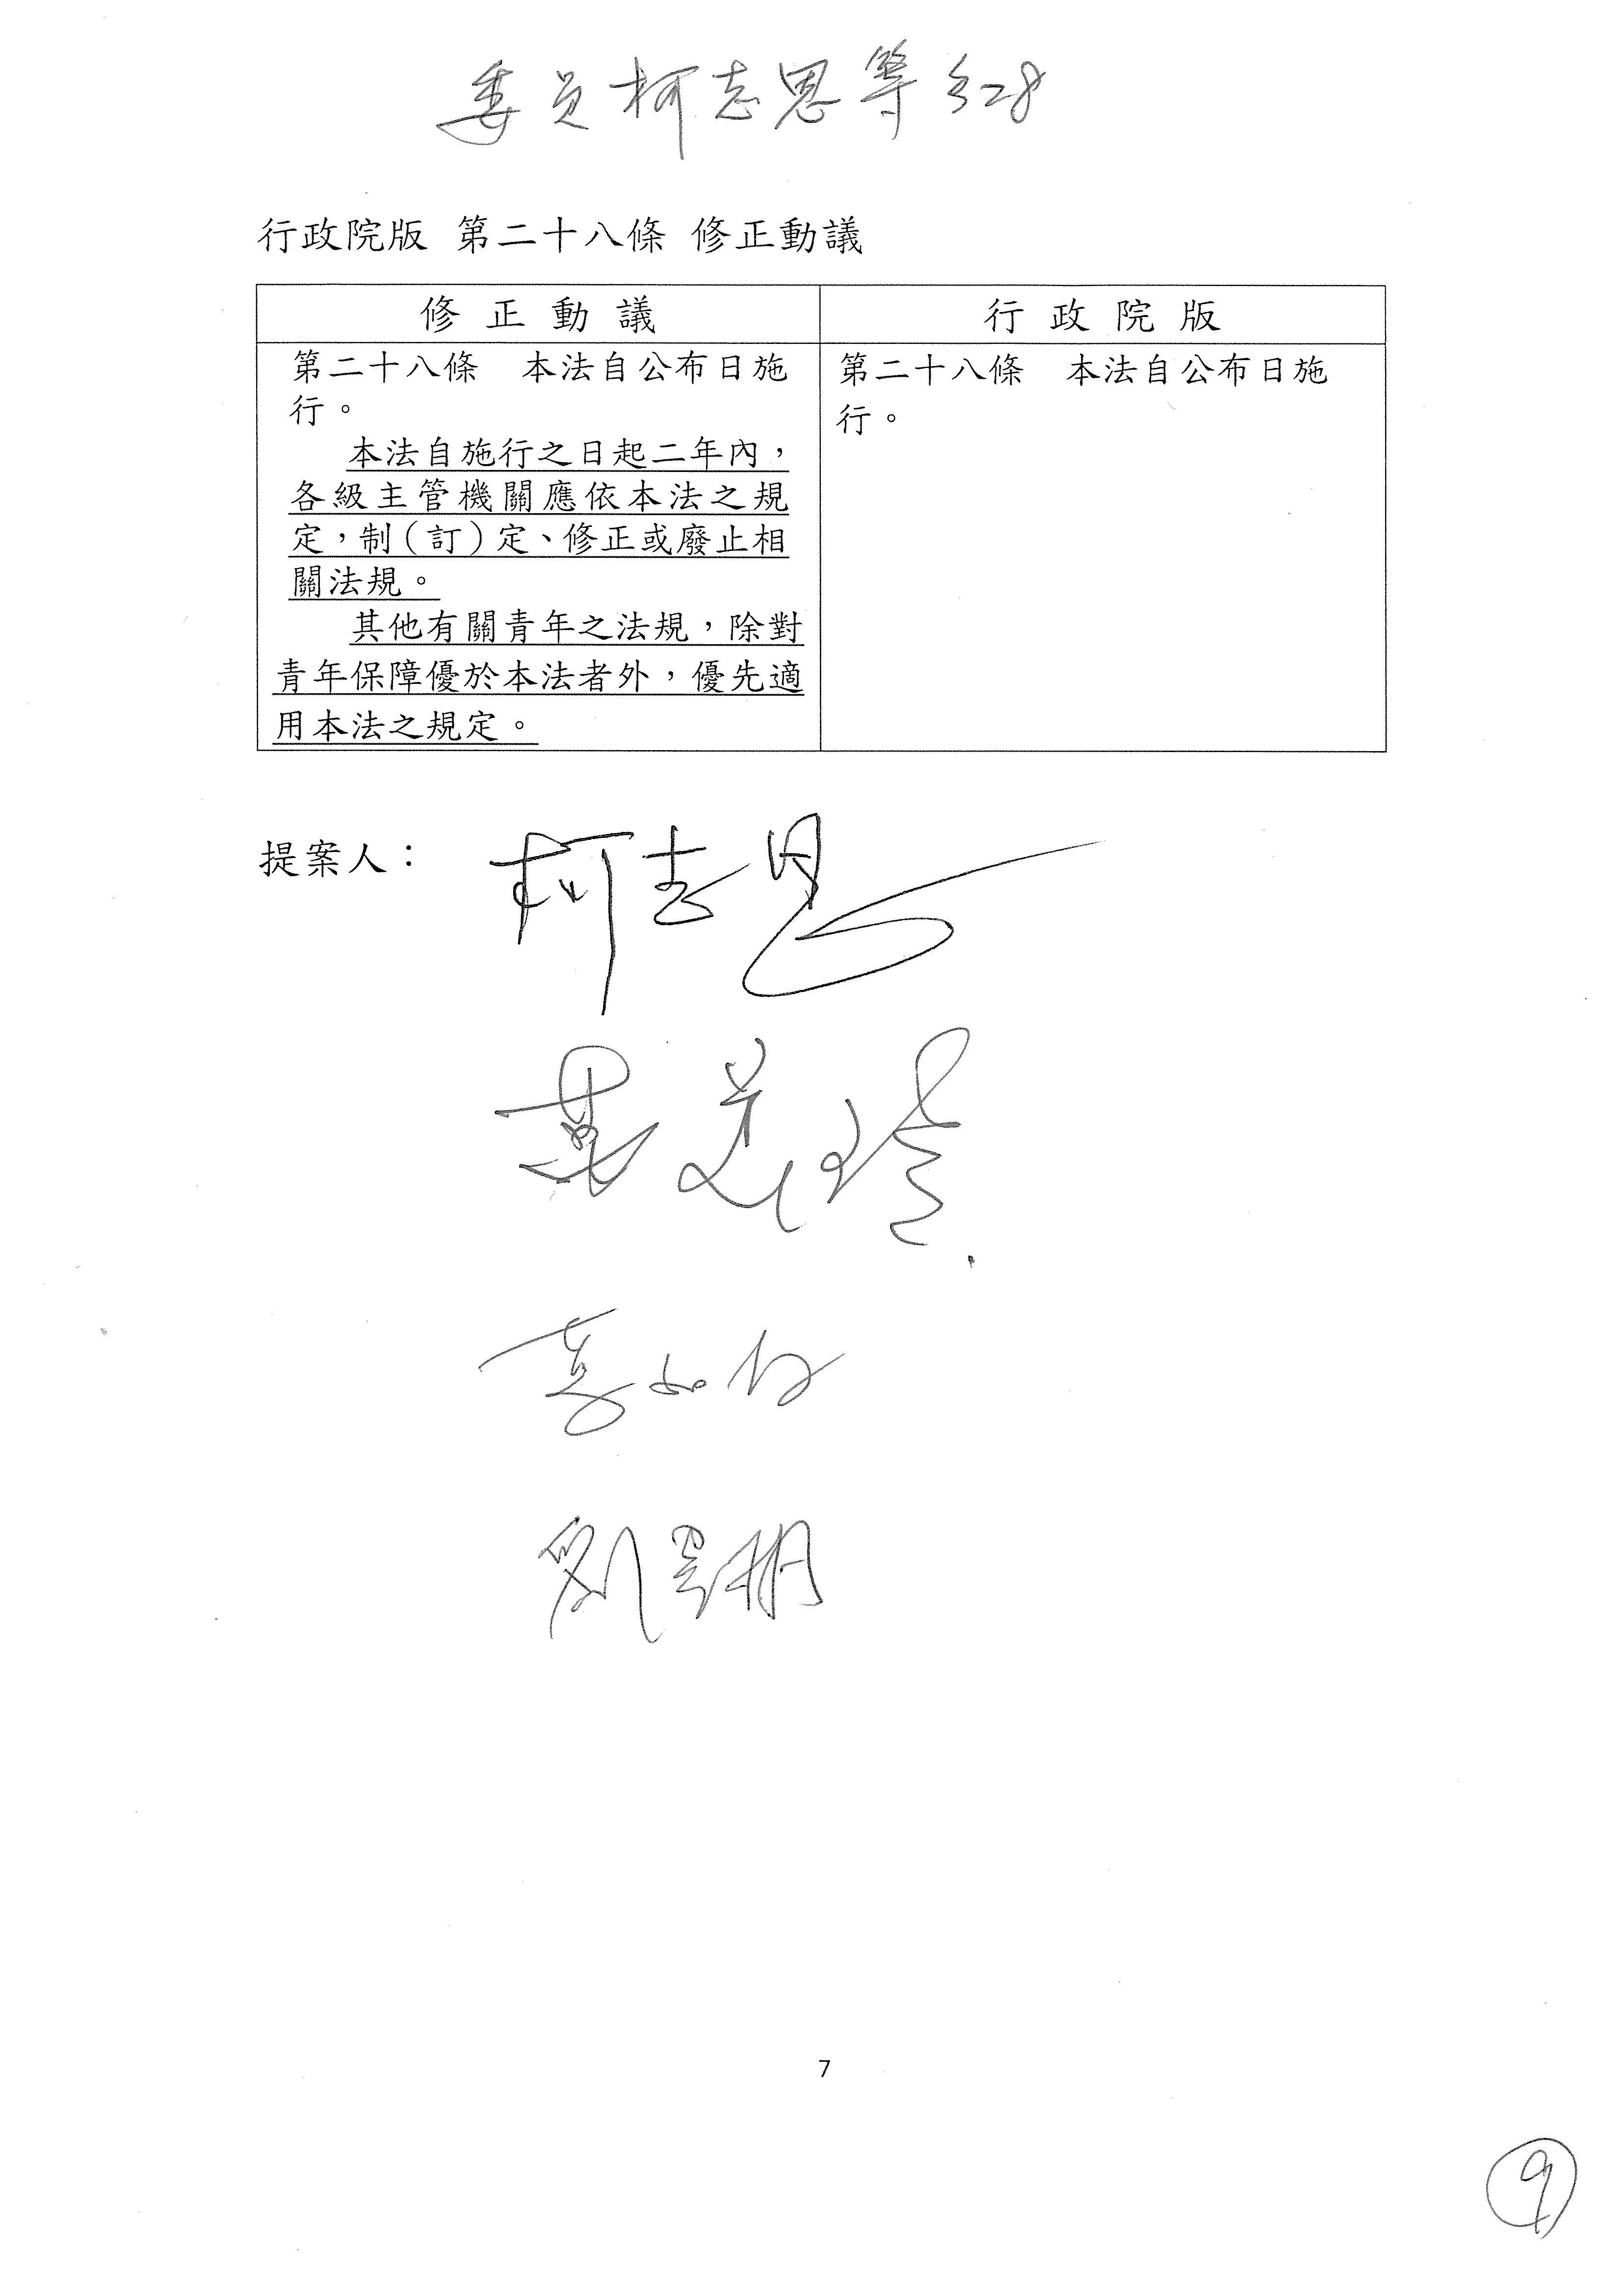 委員柯志恩等 328
行政院版 第二十八條 修正動議
修正動議
行政院版
第二十八條　本法自公布日施
行。
本法自施行之日起二年內，
各級主管機關應依本法之規
定，制（訂）定、修正或廢止相
關法規。
其他有關青年之法規，除對
青年保障優於本法者外，優先適
用本法之規定。
第二十八條　本法自公布日施
行。
提案人：
柯志恩
7
9